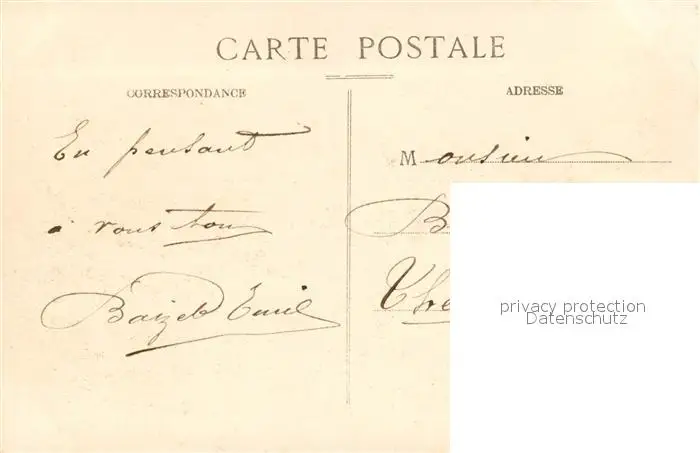 CARTE POSTALE
CORRESPONDANCE
En pensant
à vous tous
Emil
ADRESSE
Monsieur
B
The
privacy protection
Datenschutz